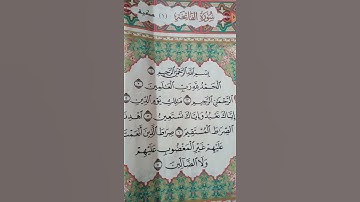 سورة الفاتحة (١)
بسم الله الرحمن الرحيم
الحمد لله رب العلمين
الرحمن الرحيم ملك يوم الدين
إياك نعبد وإياك نستعين اهدنا
الصراط المستقيم صراط الذين أنعمت
عليهم غير المغضوب عليهم
ولا الضالين